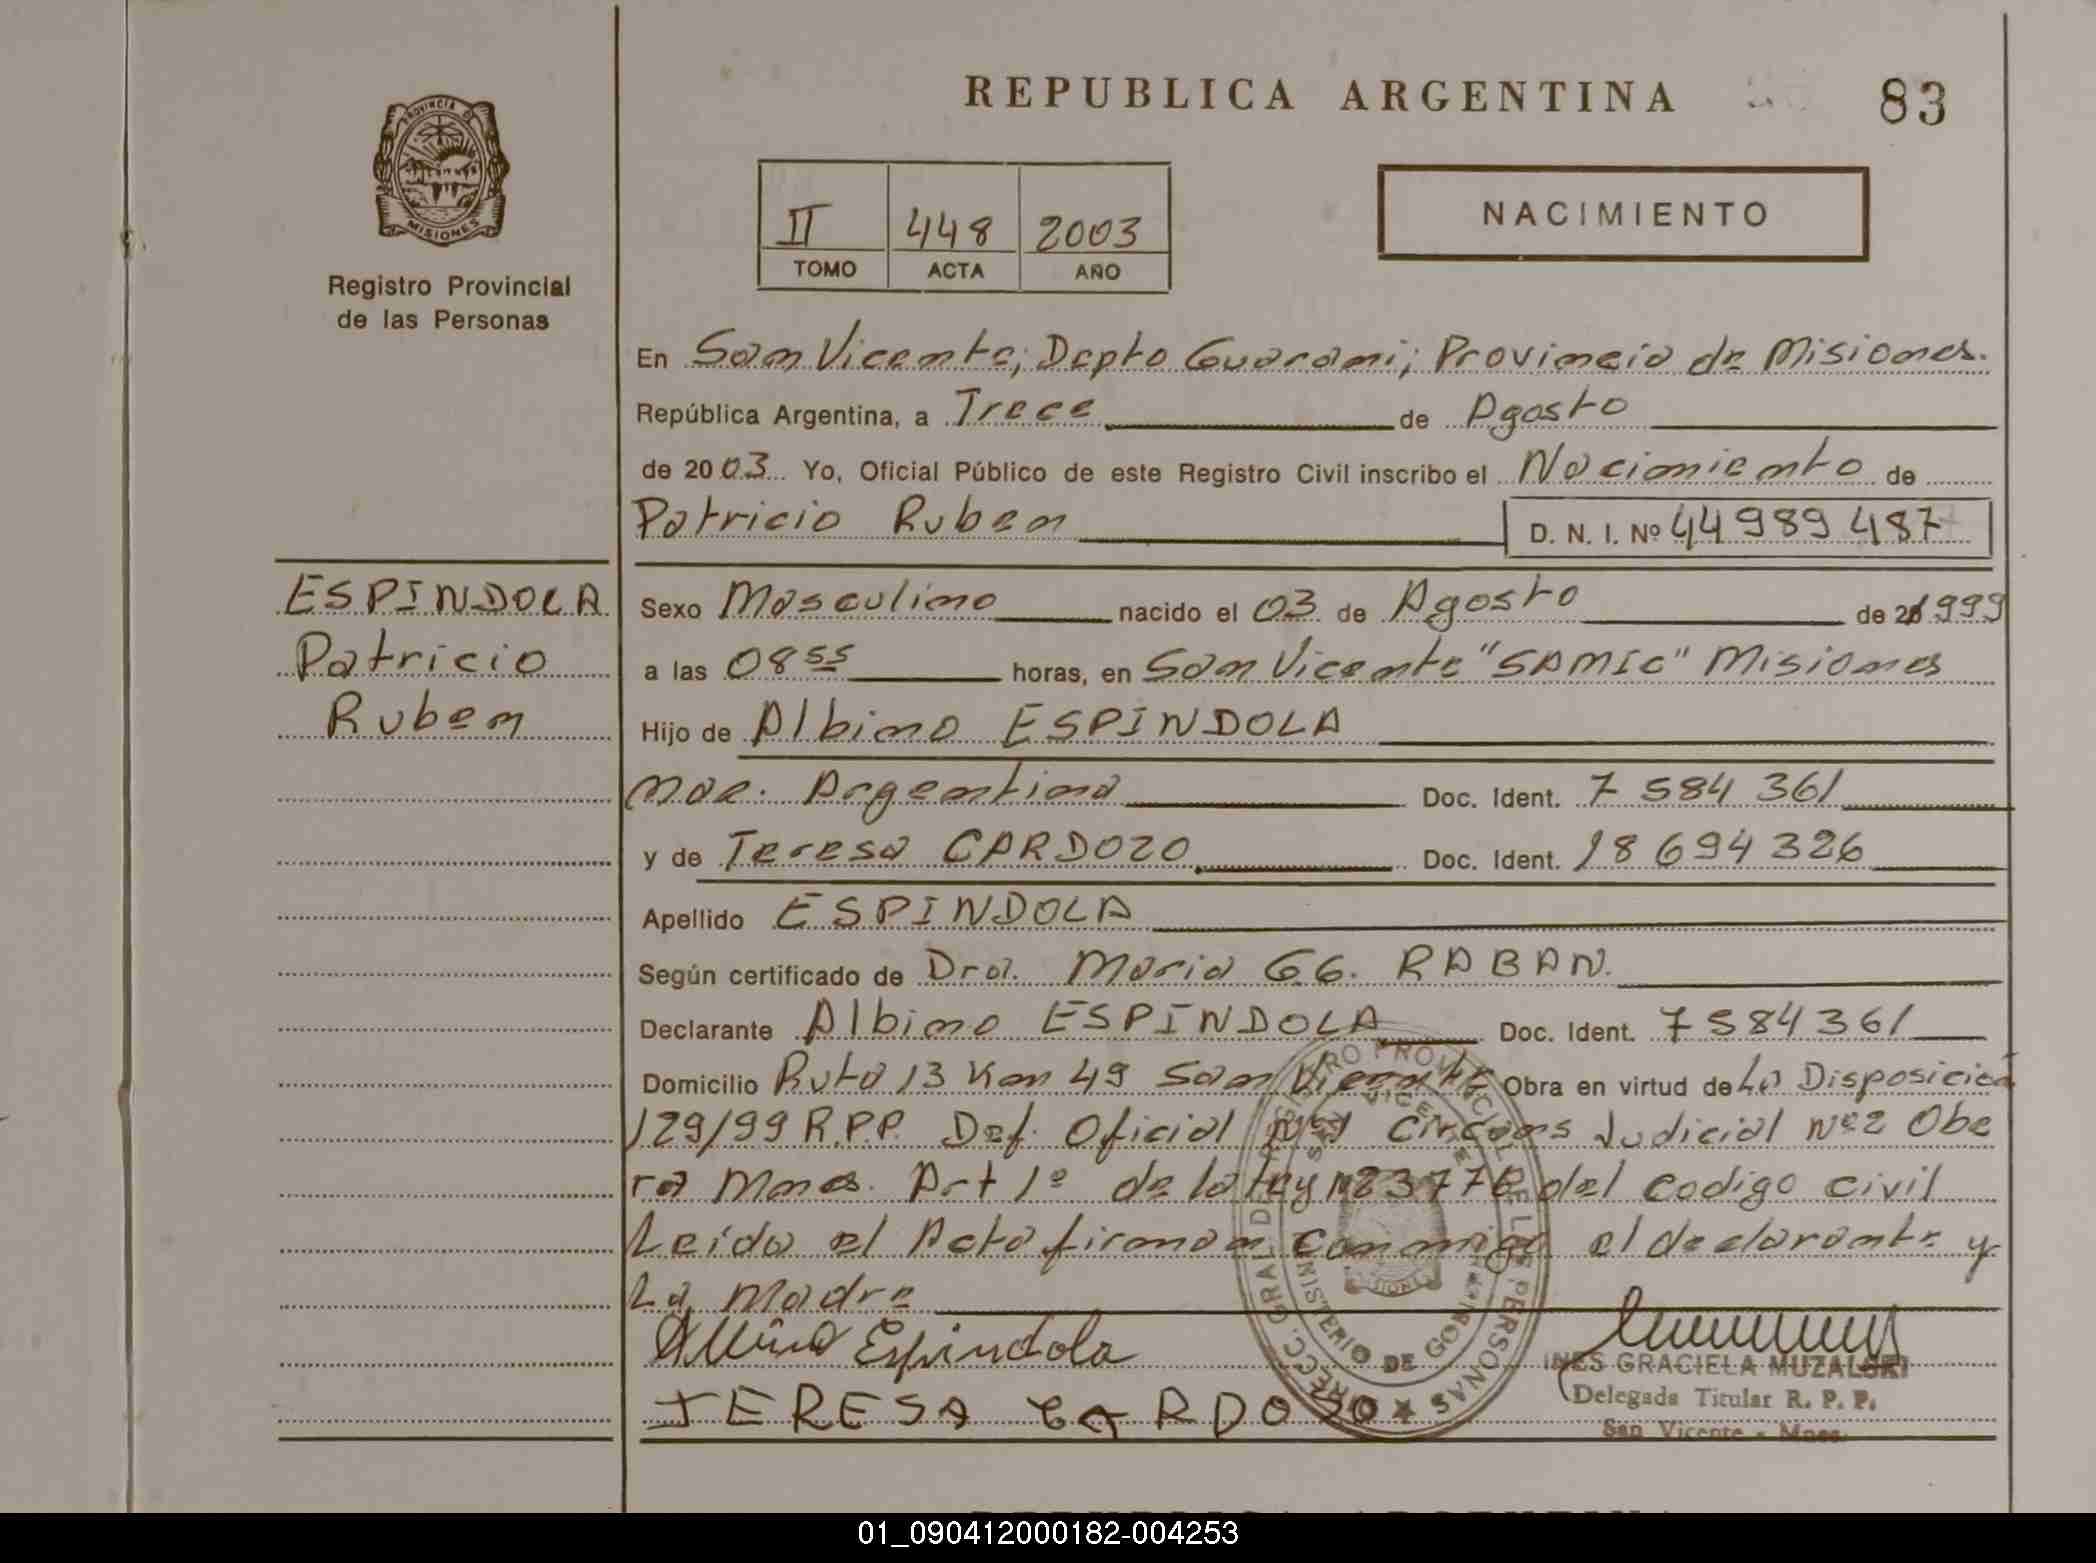 REPUBLICA ARGENTINA 83
PROVINCIA DE
MISIONES
Registro Provincial
de las Personas
II 448 2003
TOMO ACTA AÑO
NACIMIENTO
En San Vicente; Depto Guarani; Provincia de Misiones.
República Argentina, a Trece de Agosto
de 2003 Yo, Oficial Público de este Registro Civil inscribo el Nacimiento de
Patricio Ruben D. N. I. Nº 44 989 487
ESPINDOLA
Patricio
Ruben
Sexo Masculino nacido el 03 de Agosto de 1999
a las 08 55 horas, en San Vicente "SAMIC" Misiones
Hijo de Albino ESPINDOLA
nac. Argentina Doc. Ident. 7 584 361
y de Teresa CARDOZO Doc. Ident. 18 694 326
Apellido ESPINDOLA
Según certificado de Dra. Maria G.G. RABAN.
Declarante Albino ESPINDOLA Doc. Ident. 7584361
Domicilio Ruta 13 Km 49 San Vicente Obra en virtud de La Disposición
129/99 R.P.P. Def. Oficial Nº1 Circuns Judicial Nº2 Obe
ra Mnes. Art 1º de la Ley Nº 23776 del codigo civil
Leída el Acta firman conmigo el declarante y
La Madre
Albino Espindola
TERESA CARDOZO
DIRECC. GRAL DE REGISTRO PROVINCIAL DE LAS PERSONAS
SAN VICENTE
MINISTERIO DE GOBIERNO
INES GRACIELA MUZALSKI
Delegada Titular R. P. P.
San Vicente - Mnes.
REPUBLICA ARGENTINA
01_090412000182-004253